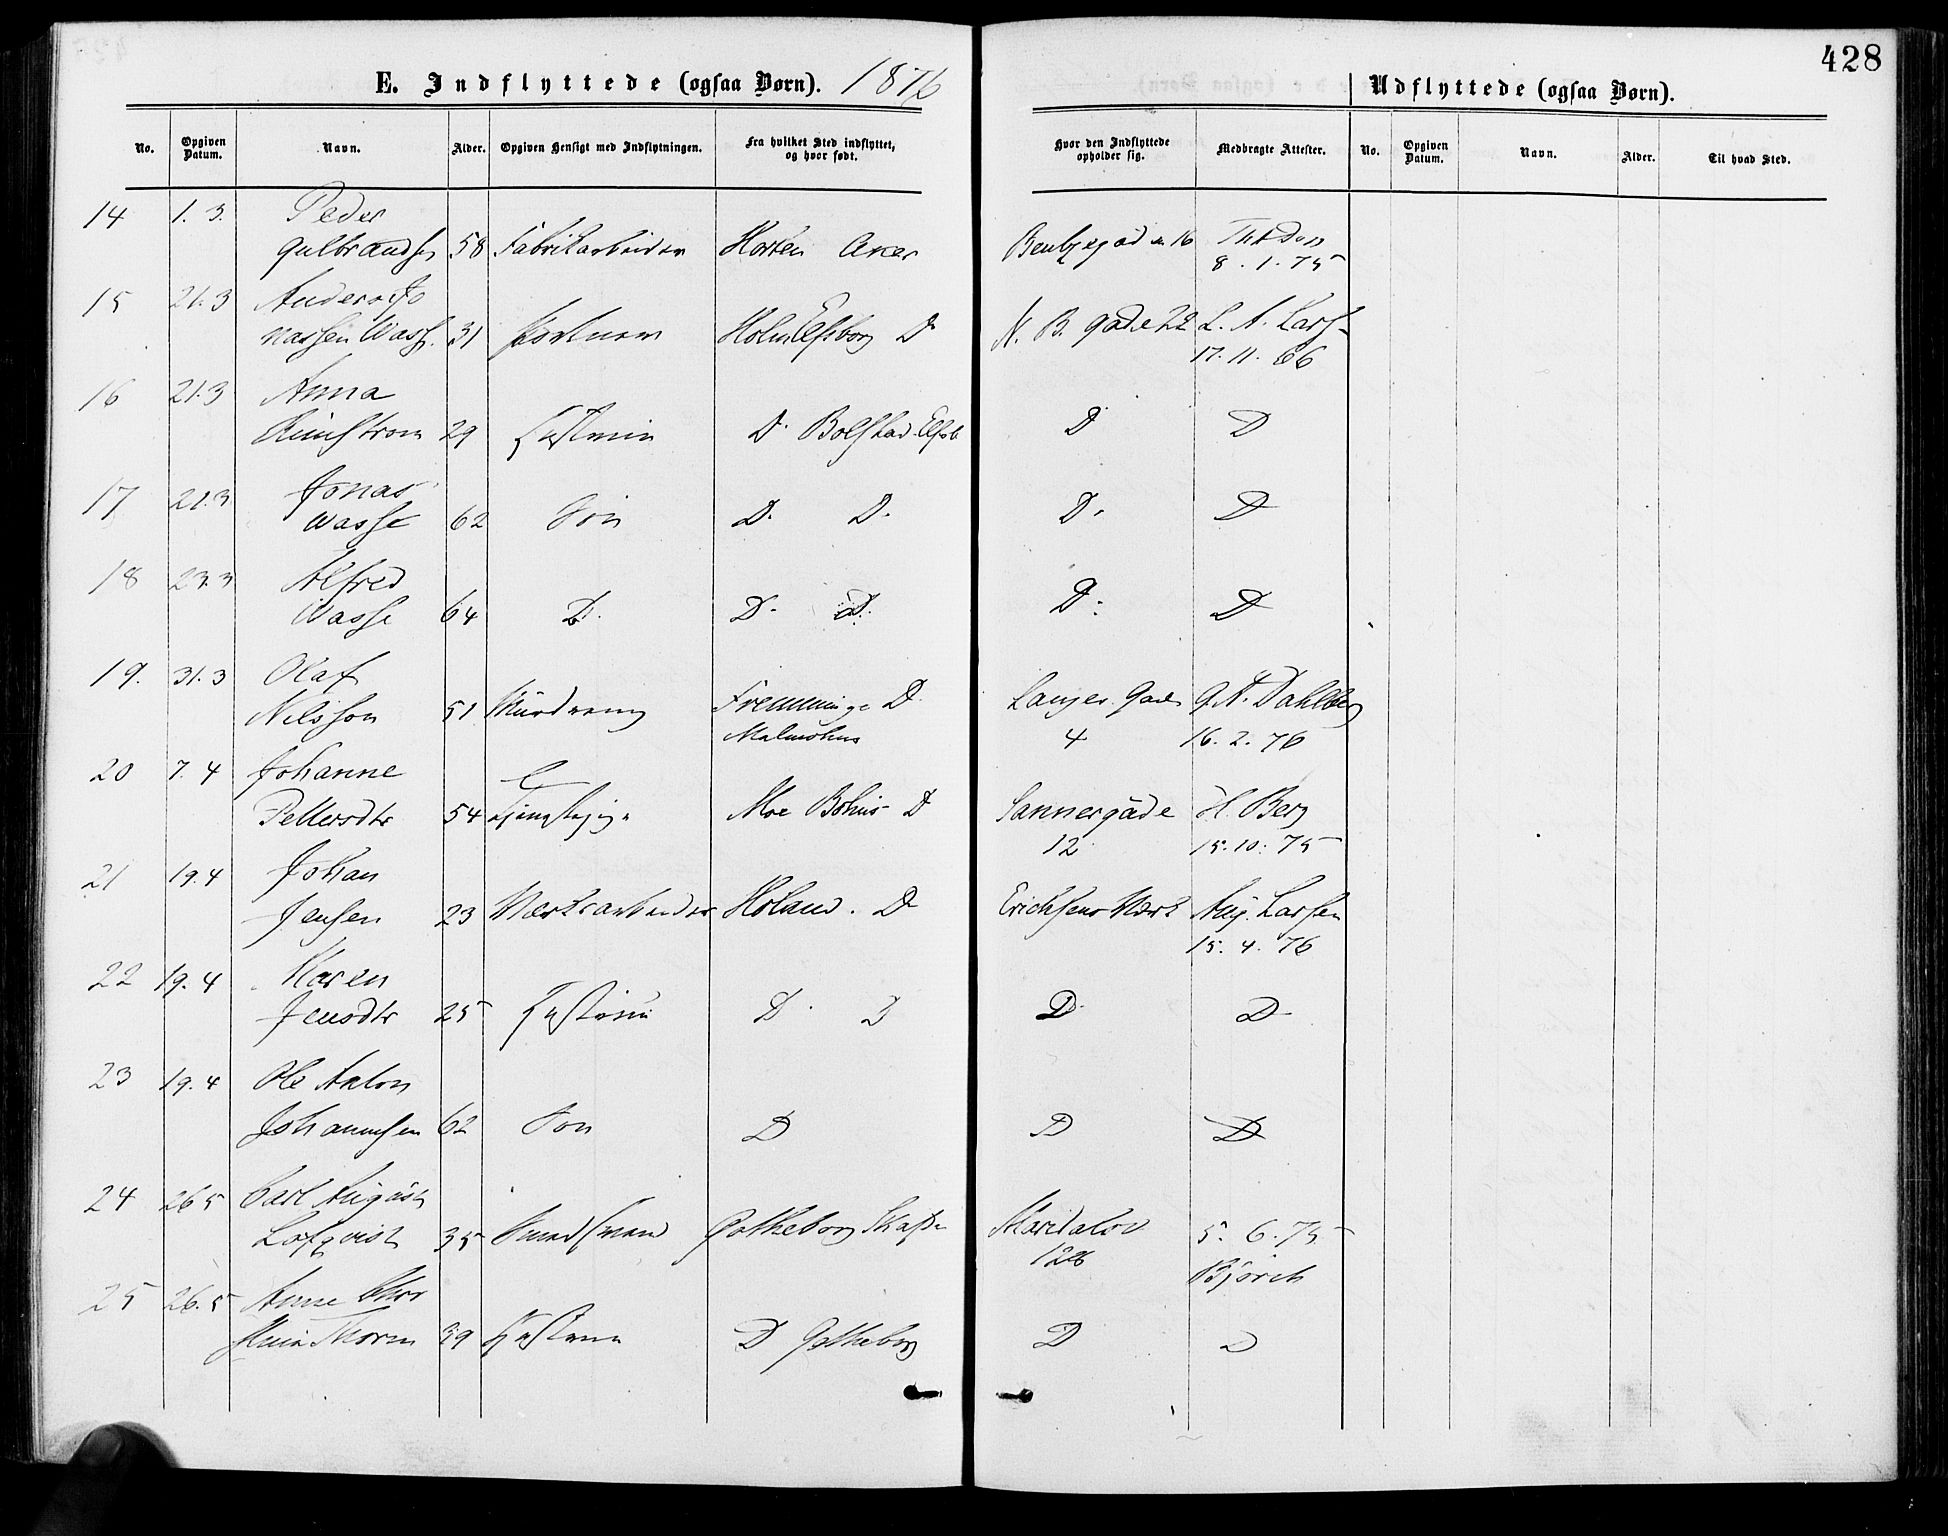 428
E. Indflyttede (ogsaa Børn). 1876
Udflyttede (ogsaa Børn).
No. Opgiven Datum. Navn. Alder. Opgiven Hensigt med Indflytningen. Fra hvilket Sted indflyttet, og hvor født. Hvor den Indflyttede opholder sig. Medbragte Attester. No. Opgiven Datum. Navn. Alder. Til hvad Sted.
14 1. 3. Peder
Gulbrandsen 58 Fabrikarbeider Horten Aker 16
8. 1. 75
15 21.3 Anders Jo
nassen Wasse 31 Holm Elfsborg D N. B. gade 22 L. A. Lars
17. 11. 66
16 21.3 Anna
29 Hustru D. Bolstad Elfsb D D
17 21.3 Jonas
Wasse 62 Søn D. D. D. D
18 23.3 Alfred
Wasse 64 D. D. D. D. D
19. 31.3 Olaf
Nilsson 51 Fremminge D. Gade G. A. Dahlberg
Malmøhus 4 16. 2. 76
20 7. 4 Johanne
Pettersdtr 54 Moe Bohus D Sannergade H. Berg
12 15. 10. 75
21 19.4 Johan
Jensen 23 Værksarbeider Høland. D Erichsens Værk Aug. Larsen
15. 4. 76
22 19. 4 Karen
Jensdtr 25 Hustru D. D D. D
23 19. 4 Ole Anton
Johannesen 62 Søn D D D
24 26 5 Carl August
Lofqvist 35 Gotheborg Maridalsv 5. 6. 75
126 Bjørck
25 26. 5 Anne Chri
Thorin 39 Hustru D Gotheborg D D